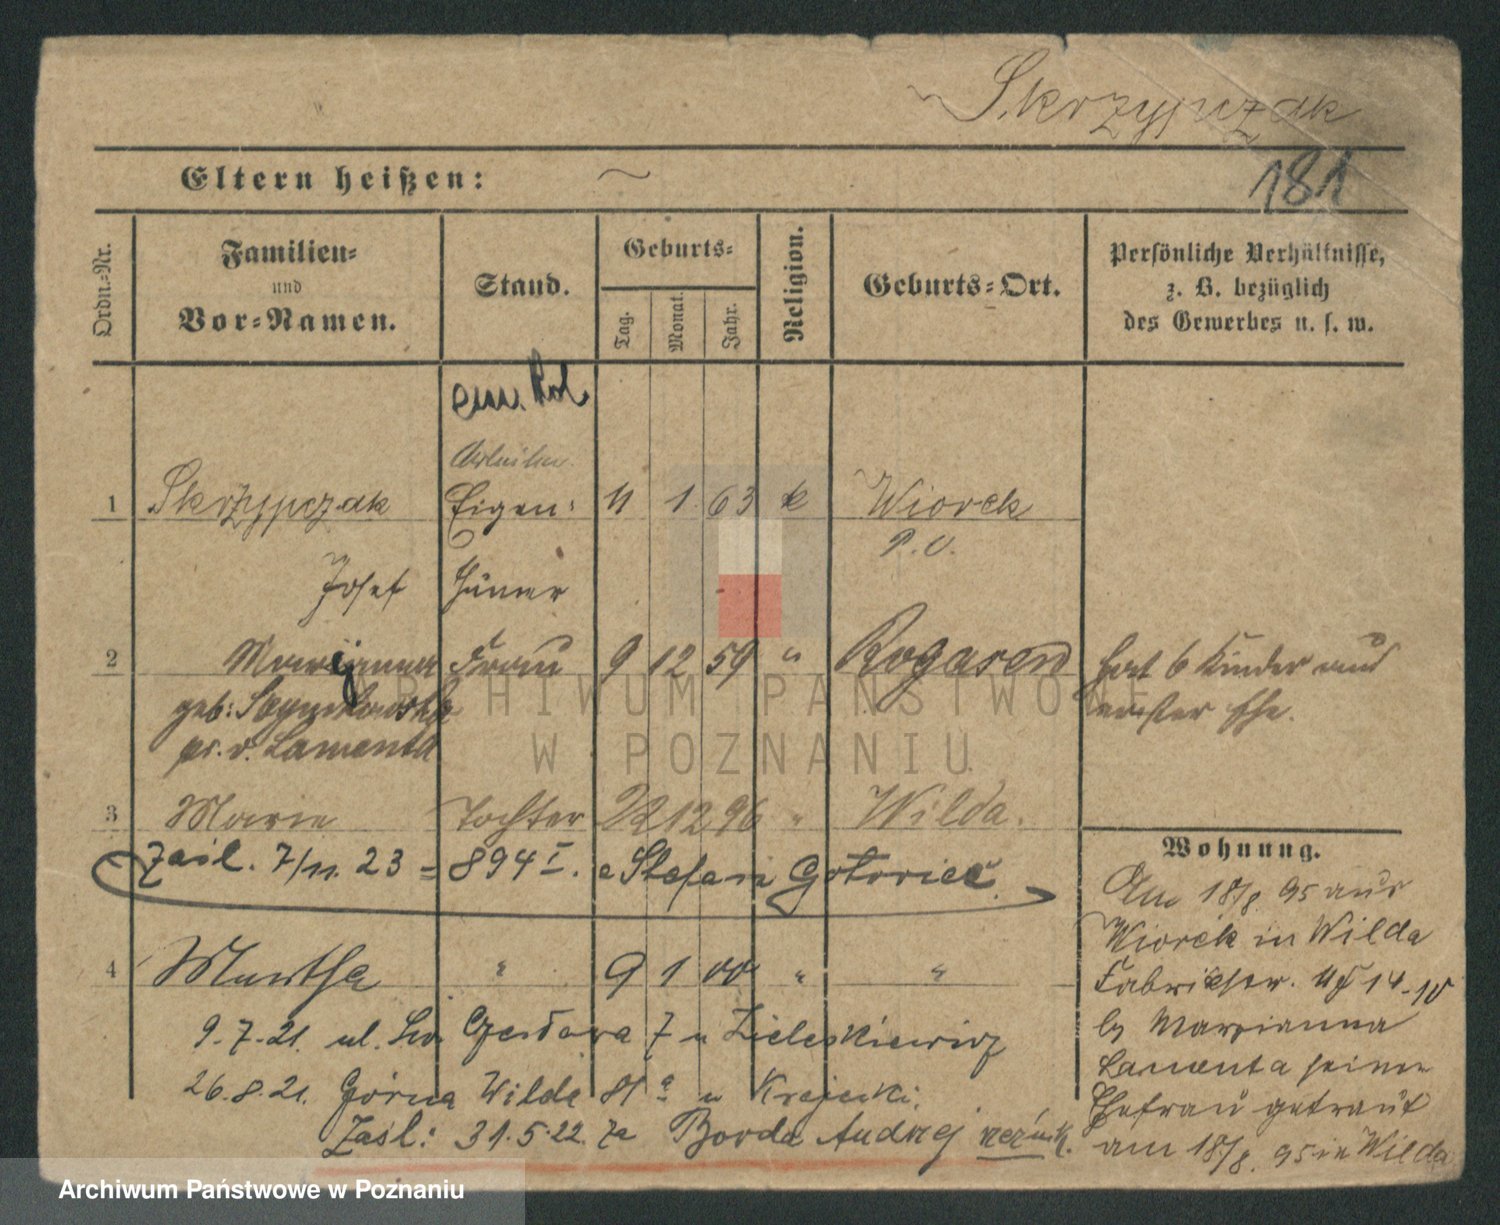 Skrzypczak
181
Eltern heißen:
Ordn.-Nr.
Familien-
und
Vor-Namen.
Stand.
Geburts-
Tag.
Monat.
Jahr.
Religion.
Geburts-Ort.
Persönliche Verhältnisse,
z. B. bezüglich
des Gewerbes u. s. w.
em. kol
Arbeiter
1 Skrzypczak Eigen- 11 1 63 k Wiorek
P. O.
Josef thümer
2 Maryanna Frau 9 12 59 " Rogasen hat 6 Kinder aus
geb: erster Ehe.
pr. v. Lamenta
3 Marie Tochter 22 12 96 " Wilda.
Zaśl. 7/11. 23 = 894 I. Stefan
4 Martha " 9 1 00 " "
9.7.21. ul. Św. Czesława 7 u Zieleskiewicz
26.8.21. Górna Wilda 81 a u Krajecki.
Zaśl: 31.5.22. za Borda Andrzej rzeźnik.
Wohnung.
Am 18/8. 95 aus
Wiorek in Wilda
Fabrikstr. 14-10
by Maryianna
Lamenta seiner
Ehefrau getraut
am 18/8. 95 in Wilda
ARCHIWUM PAŃSTWOWE
W POZNANIU
Archiwum Państwowe w Poznaniu